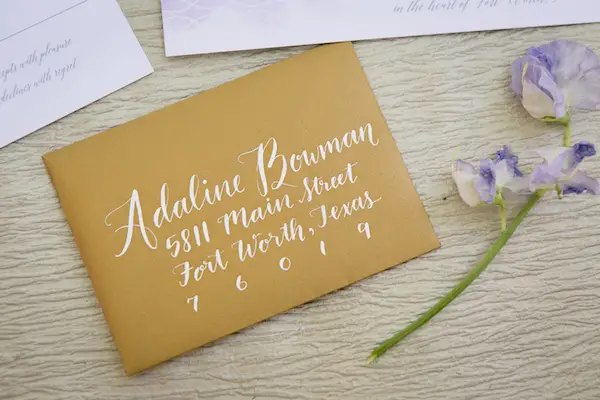 in the heart of Fort Worth
accepts with pleasure
declines with regret
Adaline Bowman
5811 Main Street
Fort Worth, Texas
76019